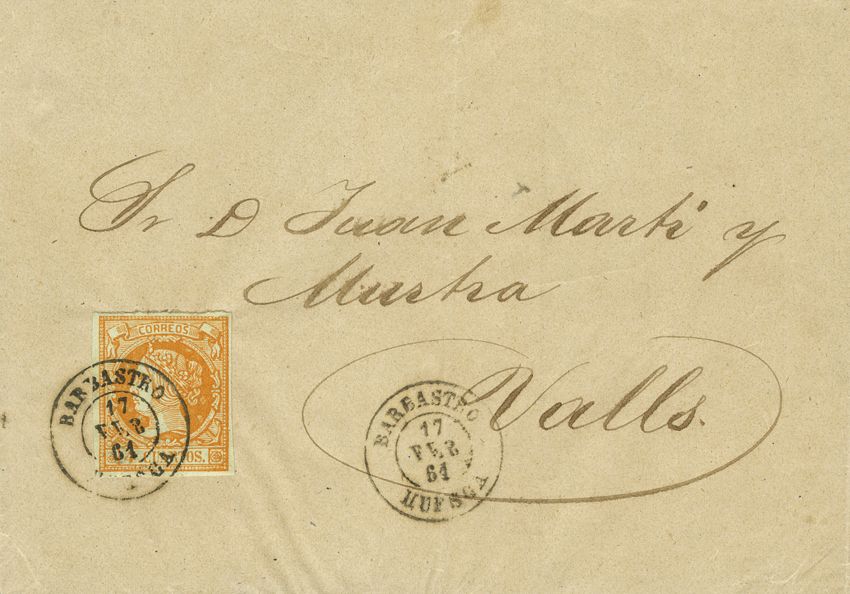 Sr D Juan Martí y
Mustra
Valls.
CORREOS
CUATRO CUARTOS.
BARBASTRO
17
FEB
61
HUESCA
BARBASTRO
17
FEB
61
HUESCA